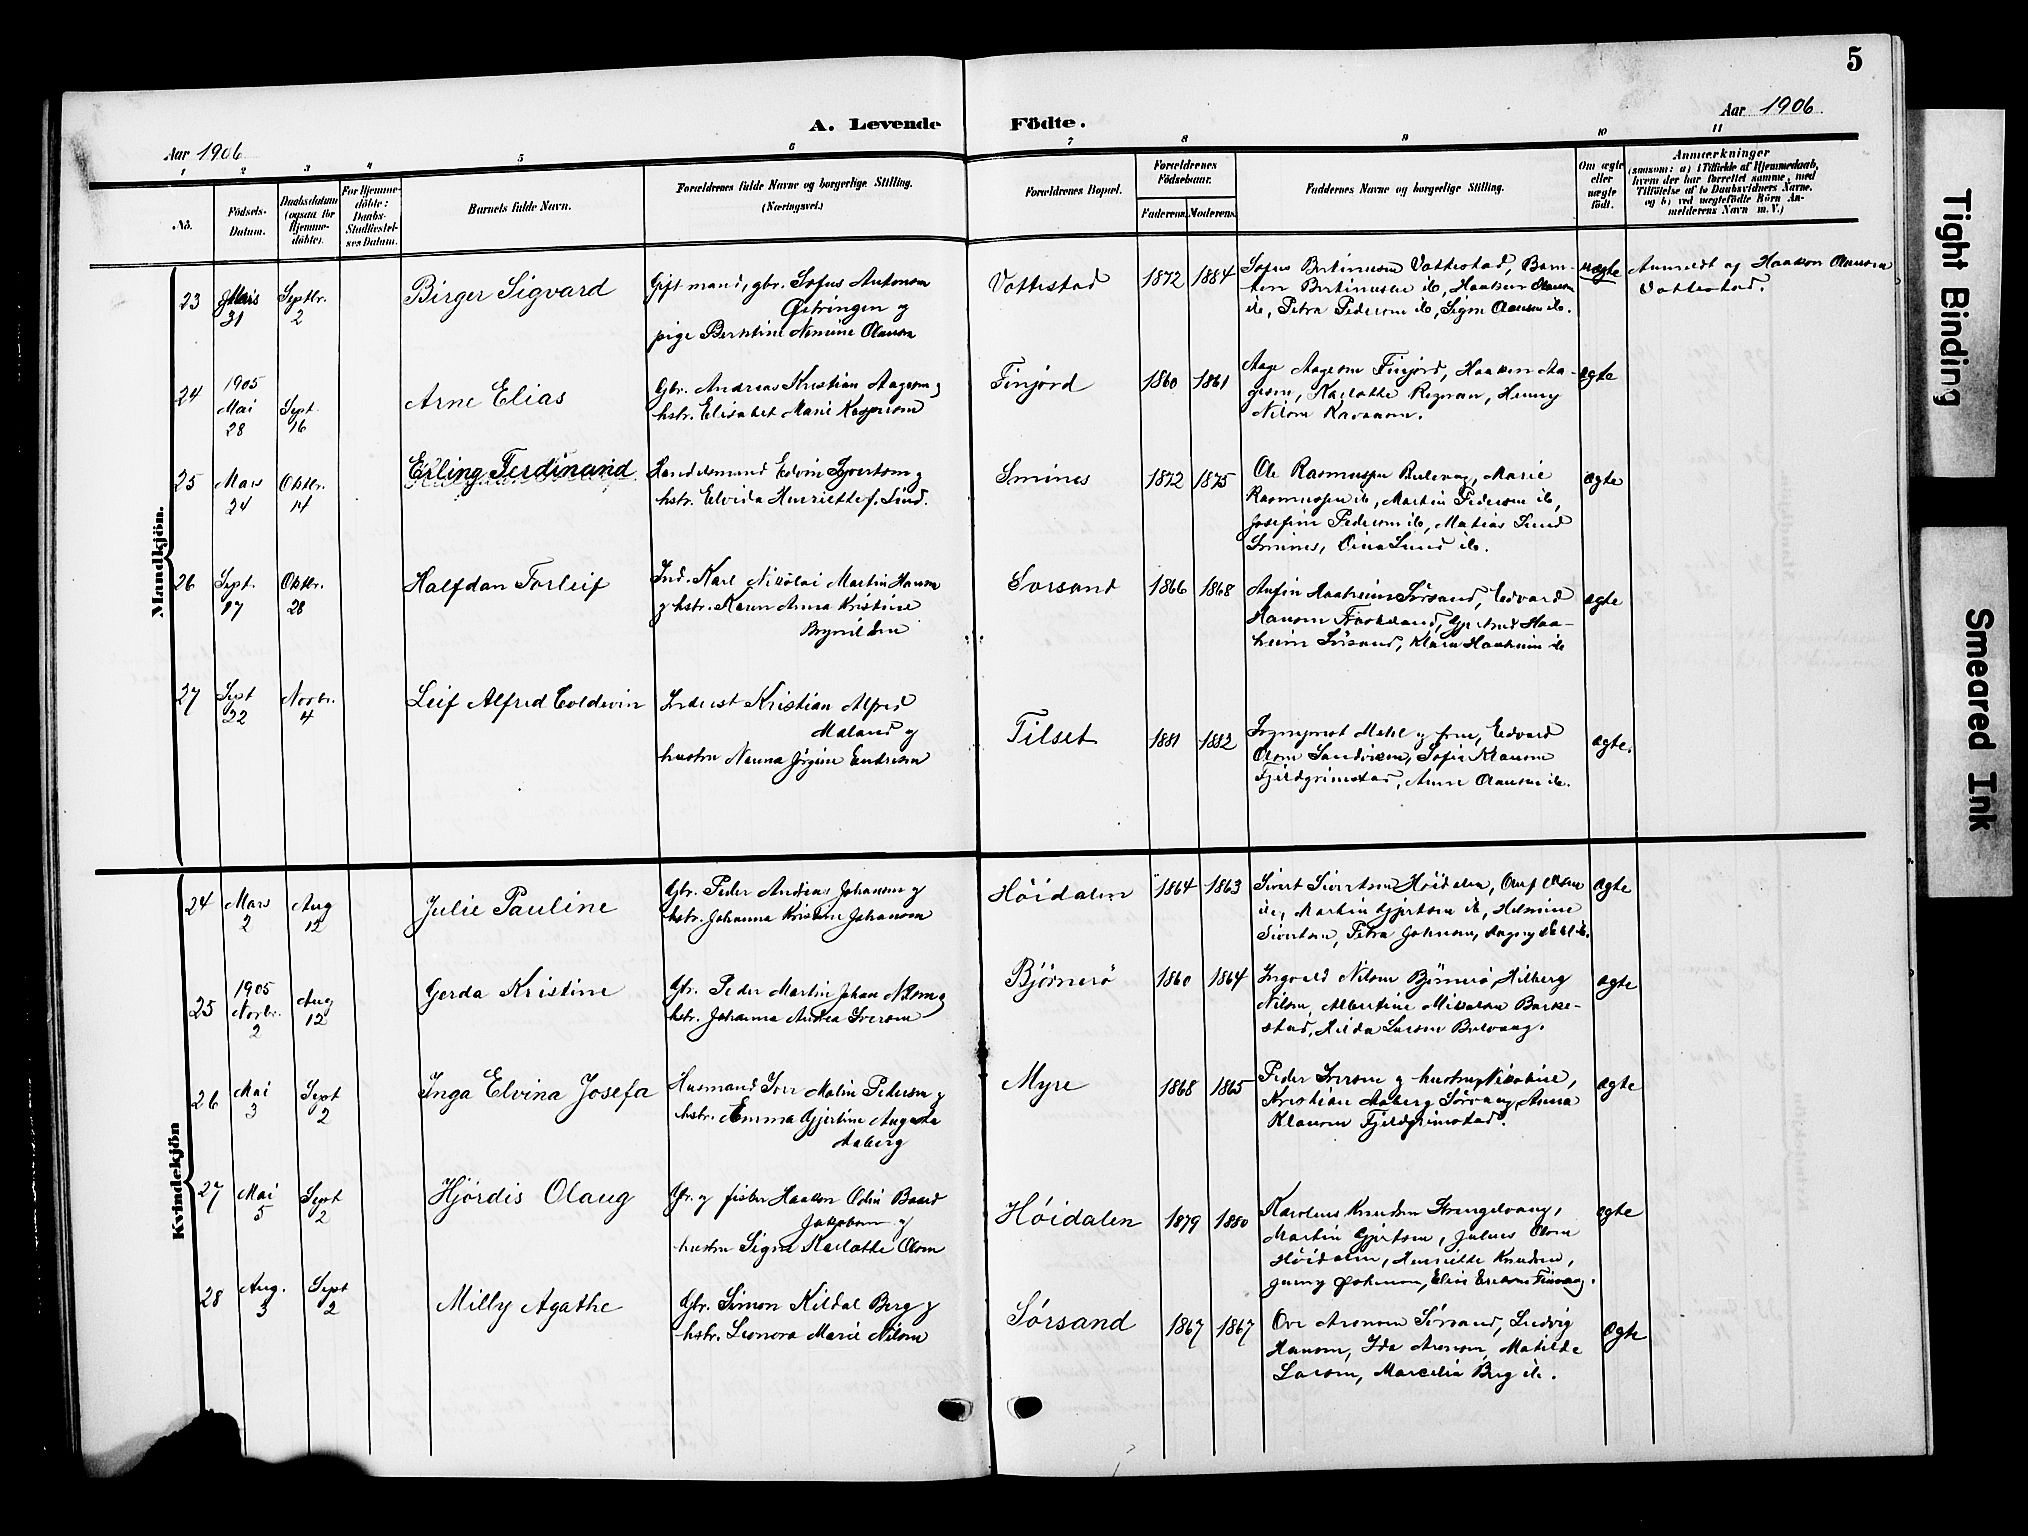 5
Aar 1906
A. Levende Födte.
Aar 1906
1 2 3 4 5 6 7 8 9 10 11
No.
Födsels-Datum.
Daabsdatum (ogsaa for Hjemme-döbte).
For Hjemme-döbte: Daabs-Stadfæstel-ses Datum.
Barnets fulde Navn.
Forældrenes fulde Navne og borgerlige Stilling.
(Næringsvei.)
Forældrenes Bopæl.
Forældrenes Födselsaar.
Faderens. Moderens.
Faddernes Navne og borgerlige Stilling.
Om ægte eller uægte födt.
Anmærkninger
(saasom: a) i Tilfælde af Hjemmedaab,
hvem der har forrettet samme, med
Tilföielse af to Daabsvidners Navne.
og b) ved uægtefödte Börn An-
melderens Navn m. V.)
Mandkjön.
23 Mais 31 Septbr. 2 Birger Sigvard
Gift mand, gbr. Sofus Antonsen
Østringen og
pige Berntine Nimine Olausen
Vottestad 1872 1884
Sofus Bertinusen Vottestad,
Bertinusen ib, Haakon Olausen
ib, Petra Pedersen ib, Signe Olausen ib.
uægte
Anmeldt af Haakon Olausen
Vottestad.
24 1905 Mai 28 Sept. 16 Arne Elias
Gbr. Andreas Kristian Aagesen og
hstr. Elisabet Marie Kaspersen
Finjord 1860 1861
Aage Aagesen Finjord, Haakon Aa-
gesen, Karlotte Regman, Henny
Nilsen
ægte
25 Mars 24 Oktbr. 14 Erling Ferdinand
Handelsmand Edvin Syvertsen og
hstr. Elvida Henriette f. Lind.
Smines 1872 1875
Ole Rasmussen, Marie
Rasmussen ib, Martin Pedersen ib,
Josefine Pedersen ib, Matias Lund
Smines, Oina Lund ib.
ægte
26 Sept. 17 Oktbr. 28 Halfdan Torleif
Ind. Karl Nikolai Martin Hansen
og hstr. Karen Anna Kristine
Brynildsen
Sorsand 1866 1868
Anfin Haaheim Sörsand, Edvard
Hansen, Haa-
heim Sörsand, Klara Haaheim ib
ægte
27 Sept 22 Novbr. 4 Leif Alfred Coldevin
Inderst Kristian Alfred
Maland og
hustru Nanna Jörgine Endresen
Tilset 1881 1882
og frue, Edvard
Olsen Sandviken, Sofie Klausen
Fjeldgrimstad, Anne Olausen ib.
ægte.
Kvindekjön
24 Mars 2 Aug 12 Julie Pauline
Gbr. Peder Andreas Johansen og
hstr. Johanna Kristine Johansen
Höidalen 1864 1863
Sivert Sivertsen Höidalen, Oluf Olsen
ib, Martin Gjertsen ib, Helmine
Sivertsen, Petra Johnsen, Dagny
ægte
25 1905 Novbr. 2 Aug 12 Gerda Kristine
Gbr. Peder Martin Johan Nilsen og
hstr. Johanna Andrea Iversen
Björnerö 1860 1864
Ingvald Nilsen Björnerö, Hilberg
Nilsen, Albertine Mikalsen Barke-
stad, Hilda Larsen Bulvaag.
ægte
26 Mai 3 Sept 2 Inga Elvina Josefa
Husmand Iver Malin Pedersen og
hstr. Emma Gjertine Augusta
Aaberg
Myre 1868 1865
Peder Iversen og hustru Nikoline,
Kristian Aaberg Sörvaag, Anna
Klausen Fjeldgrimstad.
ægte
27 Mai 5 Sept 2 Hjördis Olaug
Gbr. og fisker Haakon Odin Baard
Jakobsen og
hustru Signe Karlotte Olsen
Höidalen 1879 1880
Karolius Knudsen Strengelvaag,
Martin Gjertsen, Julius Olsen
Höidalen, Henriette Knudsen,
Jenny Johnsen, Elise Eriksen Finvaag.
ægte
28 Aug. 3 Sept 2 Milly Agathe
Gbr. Simon Kildal Berg og
hstr. Leonora Marie Nilsen
Sörsand 1867 1867
Ove Aronsen Sörsand, Ludvig
Hansen, Ida Aronsen, Matilde
Larsen, Marcelia Berg ib.
ægte
Tight Binding
Smeared Ink